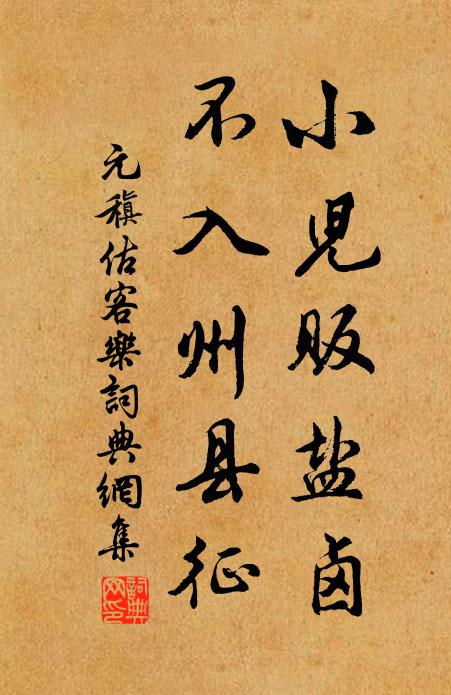 小児販盐卤
不入州县征
元稹估客樂詞典網集
詞典网印